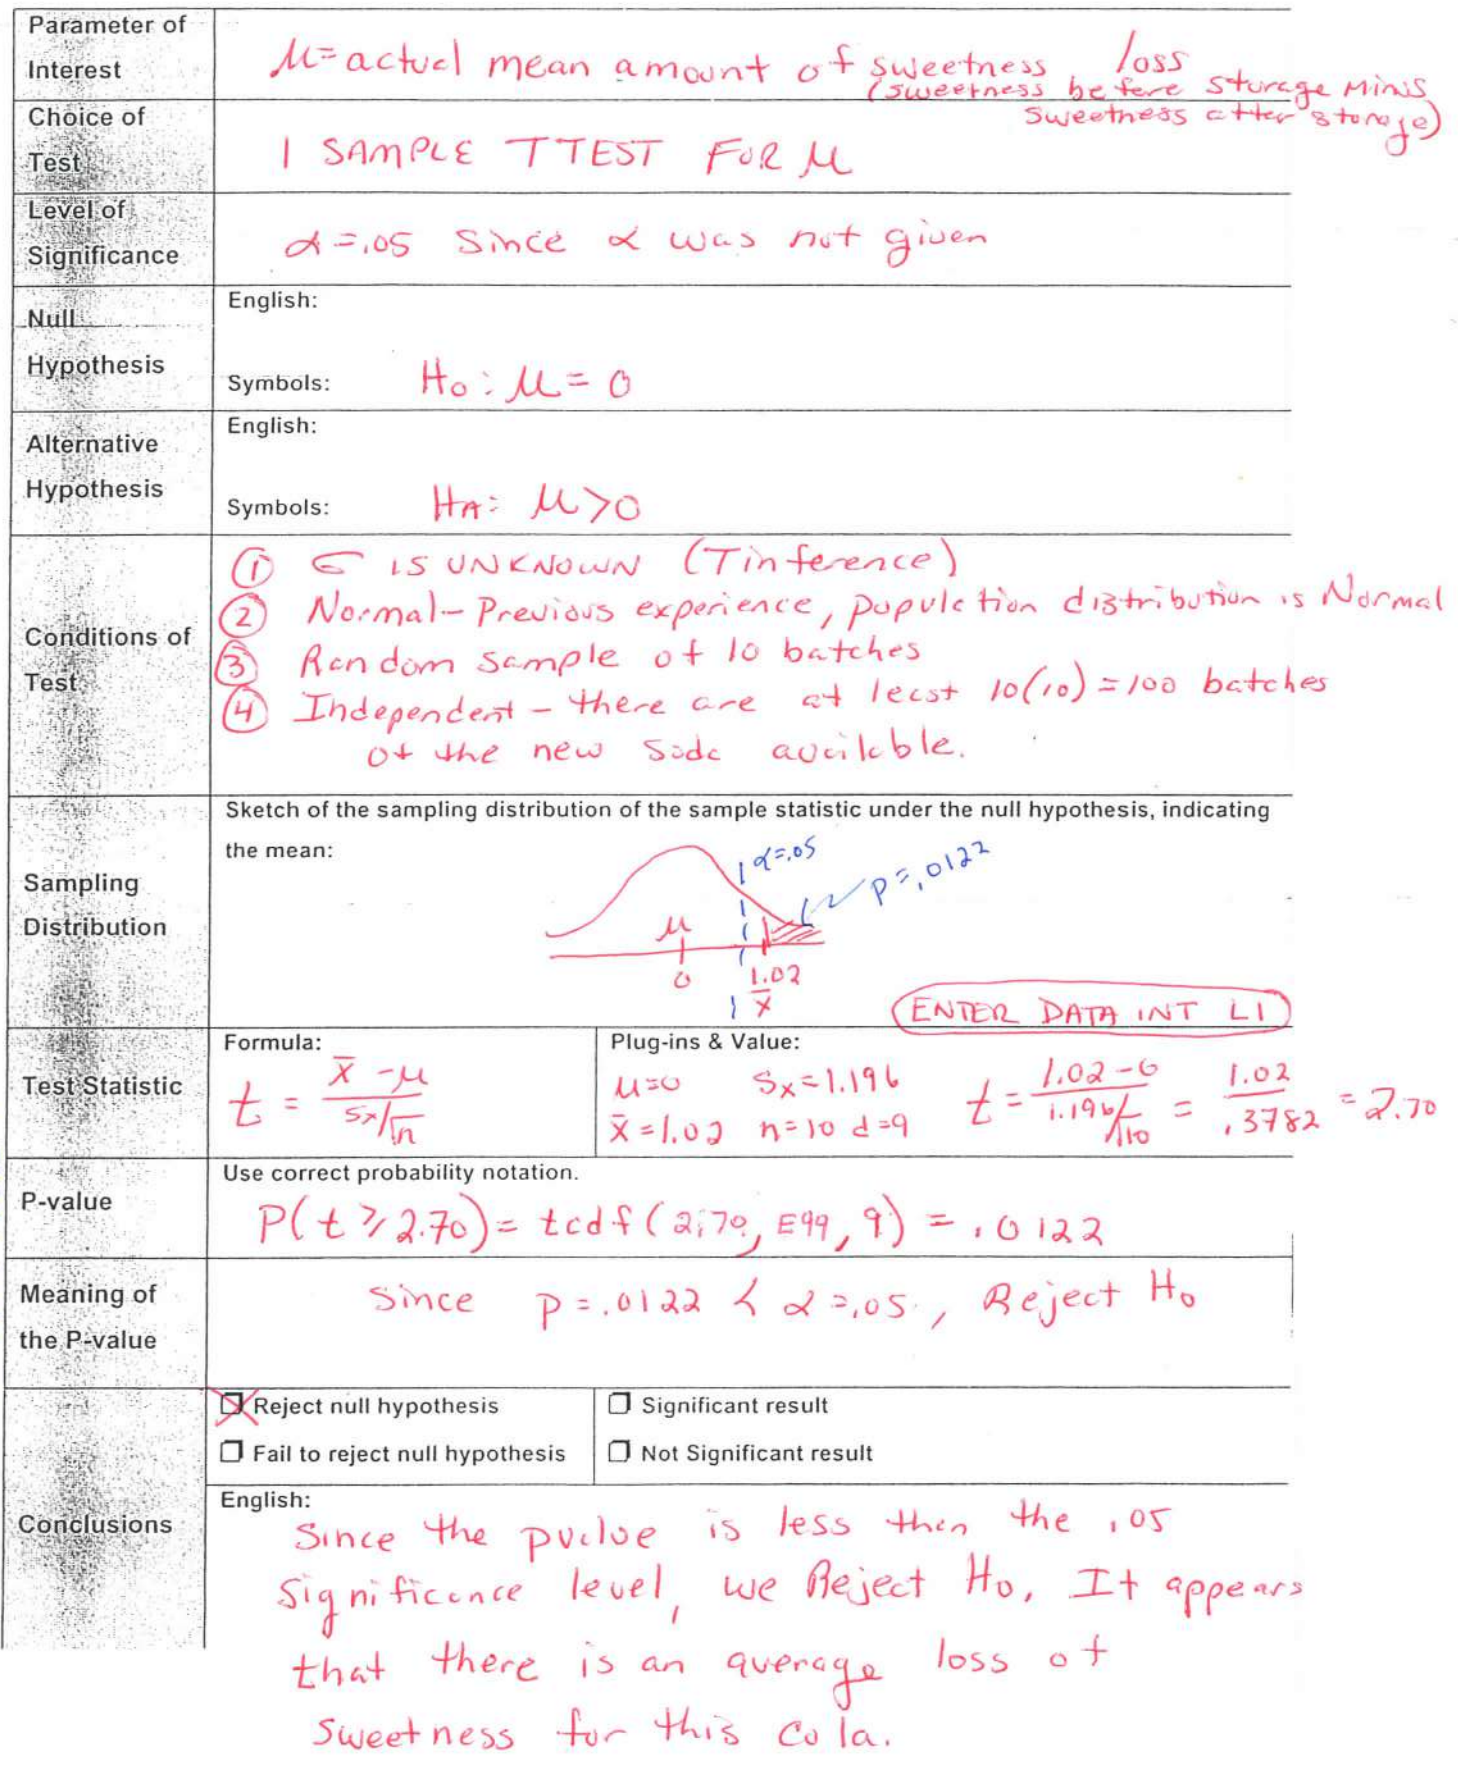 Parameter of
Interest
μ=actual mean amount of sweetness loss
(sweetness before storage minus
sweetness after storage)
Choice of
Test
1 SAMPLE T TEST FOR μ
Level of
Significance
α=.05 since α was not given
Null
Hypothesis
English:
Symbols: H₀: μ=0
Alternative
Hypothesis
English:
Symbols: HA: μ>0
Conditions of
Test
① σ IS UNKNOWN (T inference)
② Normal - Previous experience, population distribution is Normal
③ Random sample of 10 batches
④ Independent - there are at least 10(10)=100 batches
of the new soda available.
Sampling
Distribution
Sketch of the sampling distribution of the sample statistic under the null hypothesis, indicating
the mean:
α=.05
p=.0122
μ
0
1.02
x̄
ENTER DATA INT L1
Test Statistic
Formula:
t = (x̄ -μ)/(sx/√n)
Plug-ins & Value:
μ=0 Sx=1.196
x̄=1.02 n=10 d=9
t = (1.02-0)/(1.196/√10) = 1.02/.3782 = 2.70
P-value
Use correct probability notation.
P(t≥2.70) = tcdf(2.70, E99, 9) = .0122
Meaning of
the P-value
Since p=.0122 < α=.05, Reject H₀
Conclusions
Reject null hypothesis
Fail to reject null hypothesis
Significant result
Not Significant result
English:
Since the pvalue is less than the .05
significance level, we Reject H₀. It appears
that there is an average loss of
sweetness for this cola.